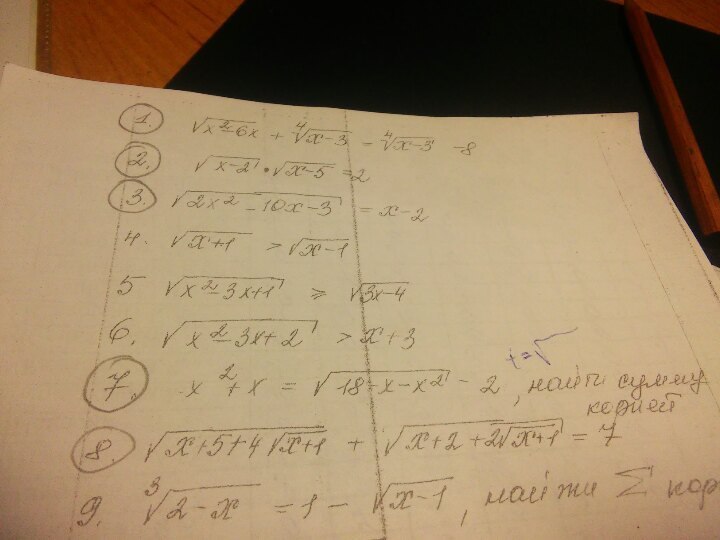 1. √(x²-6x) + ⁴√(x-3) = ⁴√(x-3) -8
2. √(x-2) · √(x-5) = 2
3. √(2x² - 10x - 3) = x-2
4. √(x+1) > √(x-1)
5 √(x²-3x+1) ≥ √(3x-4)
6. √(x²-3x+2) > x+3
t=√
7. x² + x = √(18-x-x²) - 2, найти сумму
корней
8. √(x+5+4√(x+1)) + √(x+2+2√(x+1)) = 7
9. ³√(2-x) = 1 - √(x-1), найти Σ кор